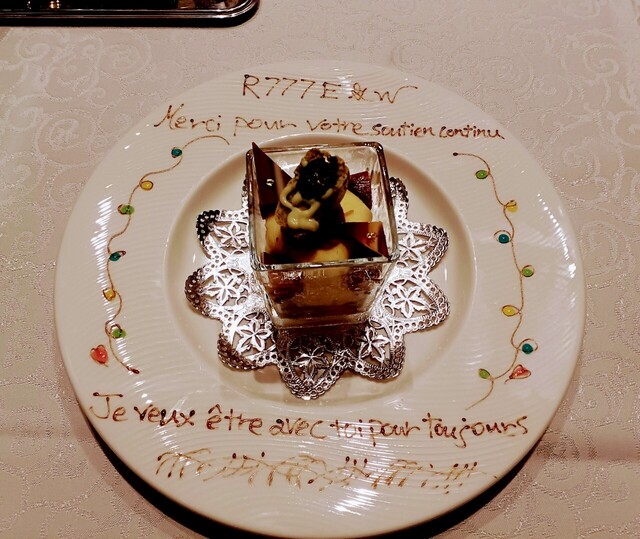 R777E&W
Merci pour votre soutien continu
Je veux être avec toi pour toujours